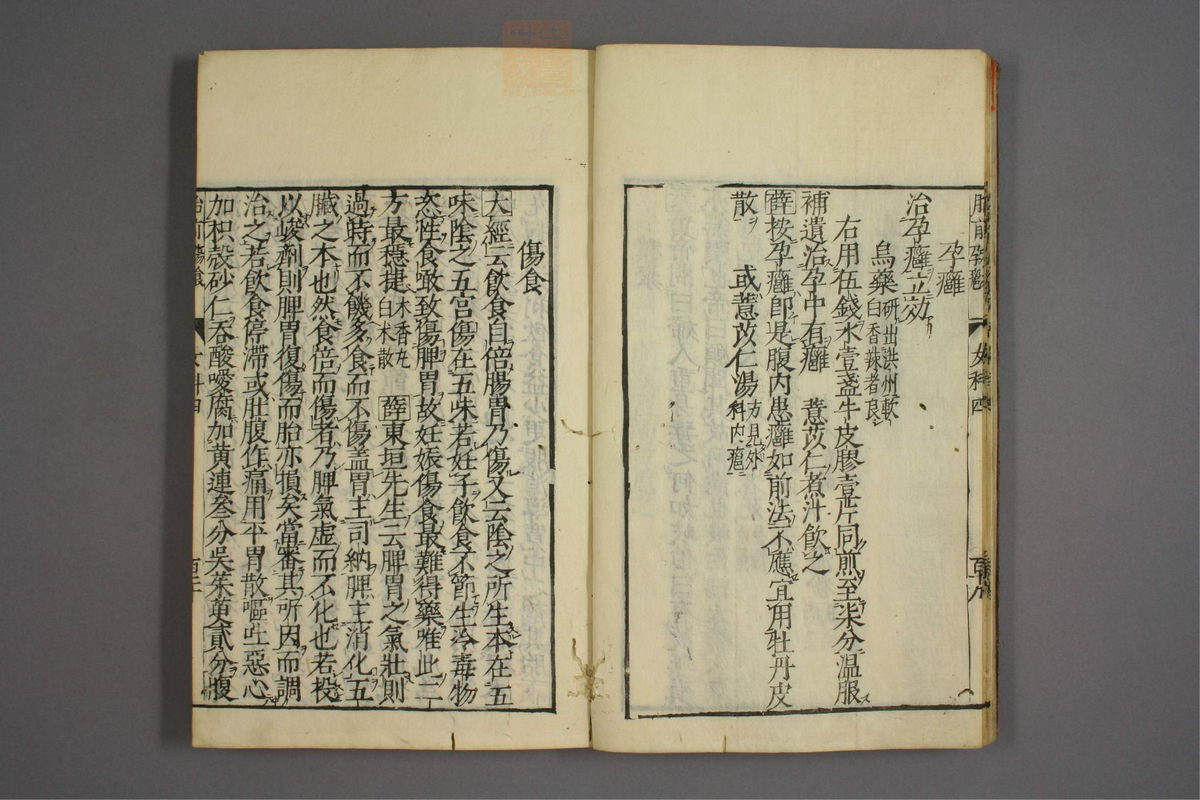 孕癰
治孕癰立效
烏藥研出洪州軟白香辣者良
右用伍錢水壹盞牛皮膠壹片同煎至柒分温服
補遺治孕中有癰 薏苡仁煮汁飲之
薛按孕癰即是腹内患癰如前法不應宜用牡丹皮
散 或薏苡仁湯方見外科内癰
女科四
傷食
大經云飲食自倍腸胃乃傷又云陰之所生本在五
味陰之五宫傷在五味若妊子飲食不節生冷毒物
恣性食噉致傷脾胃故妊娠傷食最難得藥唯此二
方最穩捷木香丸白朮散 薛東垣先生云脾胃之氣壯則
過時而不饑多食而不傷盖胃主司納脾主消化五
臓之本也然食倍而傷者乃脾氣虚而不化也若投
以峻劑則脾胃復傷而胎亦損矣當審其所因而調
治之若飲食停滯或肚腹作痛用平胃散嘔吐惡心
加枳殻砂仁吞酸噯腐加黄連叄分吳茱萸貳分腹
女科四